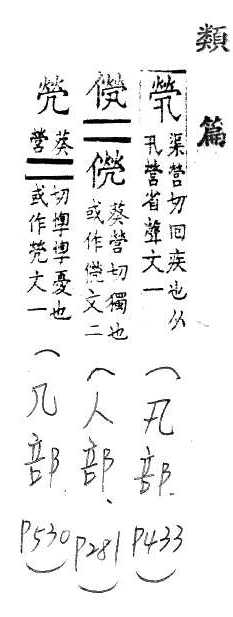 類篇
煢
渠營切回疾也从
卂營省聲文一
(卂部. P433)
葵營切獨也
或作文二
(人部、P281)
焭
葵營切憂也
或作焭文一
(几部 P530)